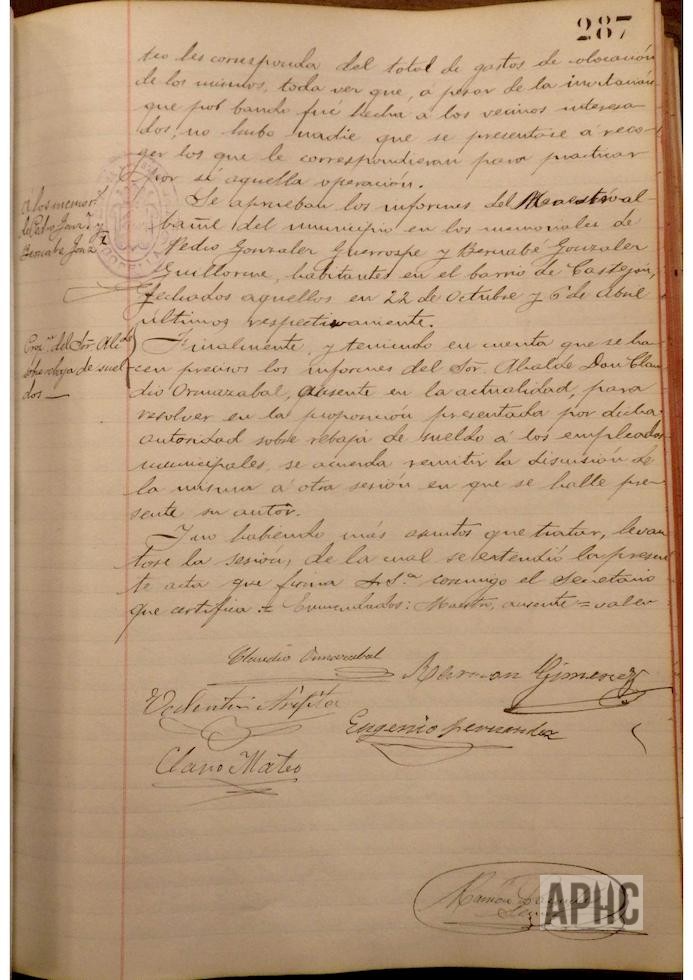 287
les corresponda del total de gastos de colocación
de los mismos, toda vez que, a pesar de la invitación
que por bando fué hecha á los vecinos interesa-
dos, no hubo nadie que se presentase á reco-
ger los que le correspondieran para practicar
por sí aquella operación.
á los memor.s
de Pedro Gonz.z y
Bernabe Gonz.z
Se aprueban los informes del Maestro al-
bañil del municipio en los memoriales de
Pedro Gonzalez Guerrospe y Bernabé Gonzalez
Guillorme, habitantes en el barrio de Castejón,
fechados aquellos en 22 de Octubre y 6 de Abril
últimos respectivamente.
del Sor. Alcde
sobre rebaja de suel-
dos
Finalmente y teniendo en cuenta que se ha-
cen precisos los informes del Sor. Alcalde Don Clau-
dio Ormazabal, ausente en la actualidad, para
resolver en la proposición presentada por dicha
autoridad sobre rebaja de sueldo á los empleados
municipales, se acuerda remitir la discusión de
la misma á otra sesión en que se halle pre-
sente su autor.
Y no habiendo más asuntos que tratar, levan-
tose la sesión, de la cual se extendió la presen-
te acta que firma S.Sª conmigo el Secretario
que certifica = Enmendados: Maestro, ausente = valen
Claudio Ormazabal
Roman Gimenez
Valentin
Eugenio Fernandez
Claro Mateo
Ramón
APHC